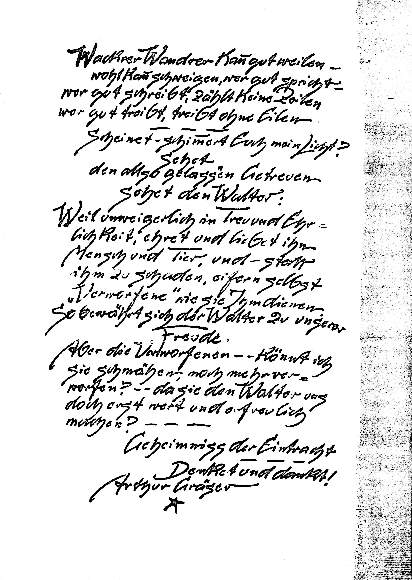 Wackrer Wandrer kan̄ gut weilen –
wohl kan̄ schweigen, wer gut spricht –
wer gut schreibt, zählt keine Zeilen
wer gut treibt, treibt ohne Eilen
Scheinet – schimert Euch mein Licht?
Sehet
den allso gelassen Getreuen
Sehet den Walter:
Weil unweigerlich in Treu und Ehr=
lichkeit, ehret und liebet ihn
Mensch und Tier, und – statt
ihm zu schaden, eifern selbst
„Verworfene" wie sie Ihm dienen
So bewährt sich der Walter zu unserer
Freude.
Aber die Verworfenen – – könnt ich
sie schmähen, noch mehr ver=
werfen? – – da sie den Walter uns
doch erst wert und erfreulich
machen? – – – –
Geheimniss der Eintracht
Denket und danket!
Arthur Gräser